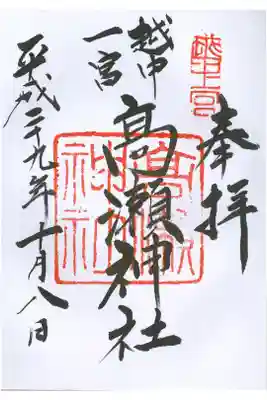 奉拝
越中
一宮
高瀬神社
平成二十九年十月八日
高瀬神社